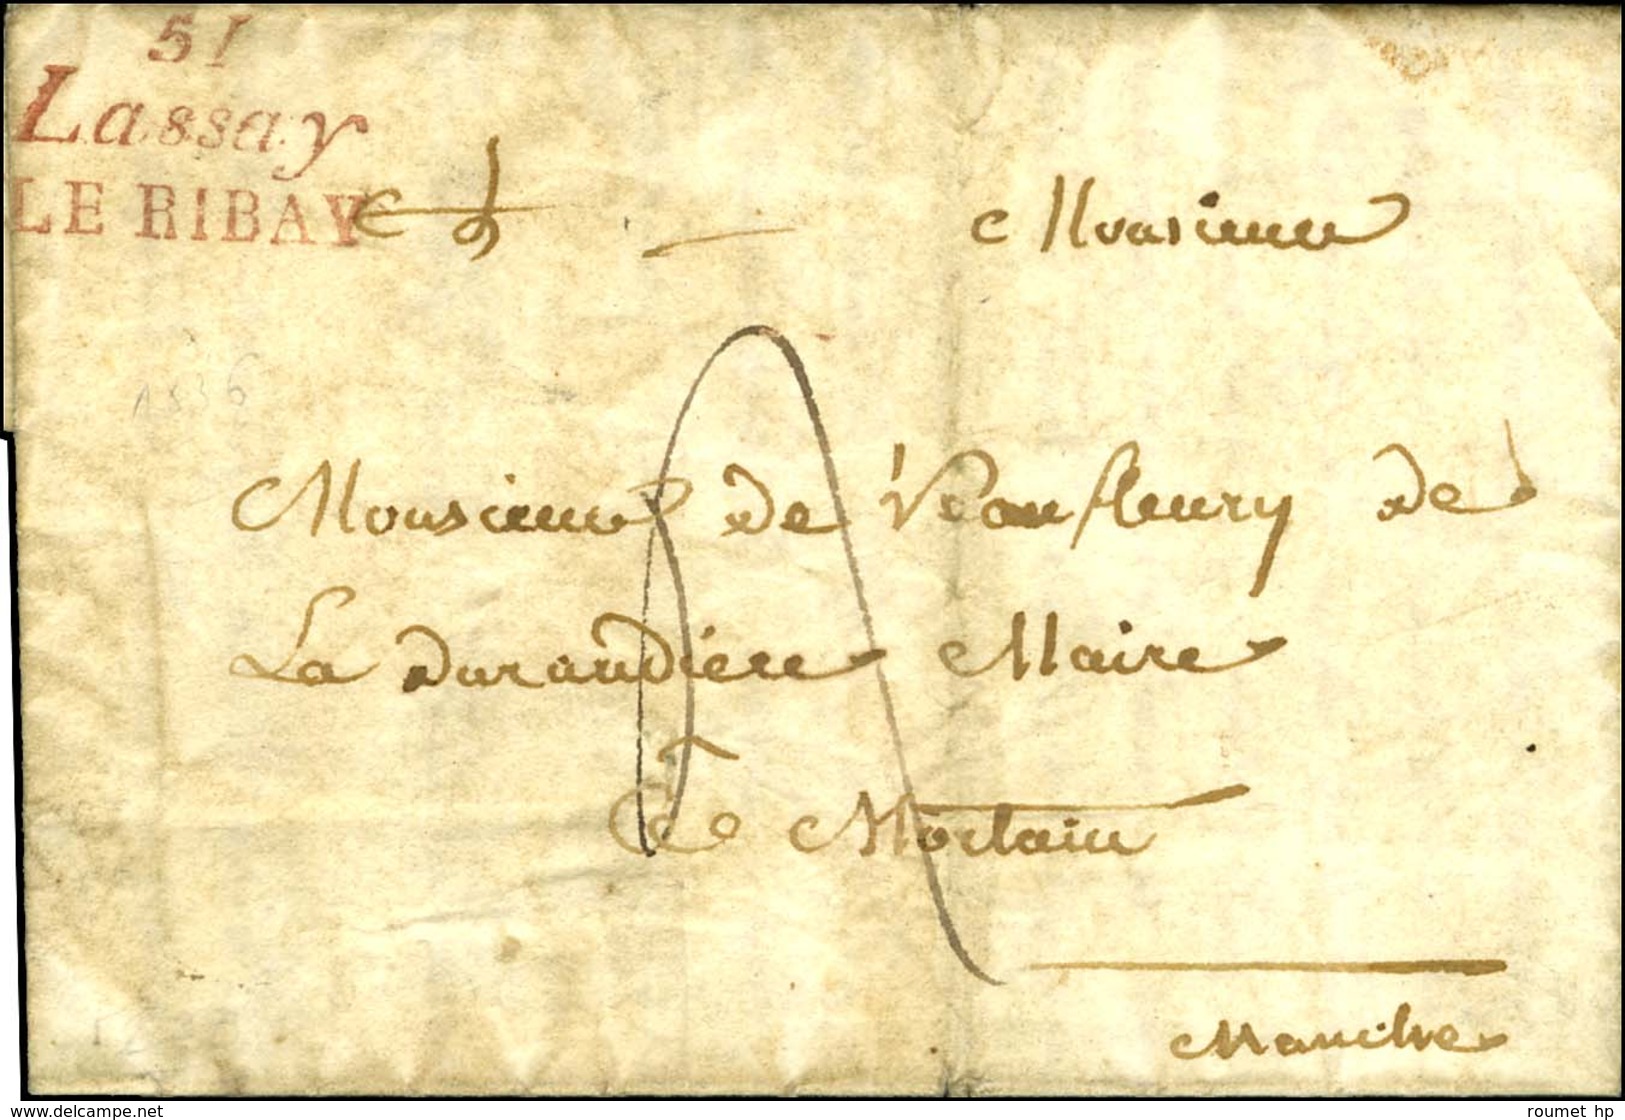 51
Lassay
LE RIBAY
Monsieur
1836
Monsieur de Vaufleury de
La durandiere Maire
à Mortain
Manche
www.delcampe.net
roumet hp